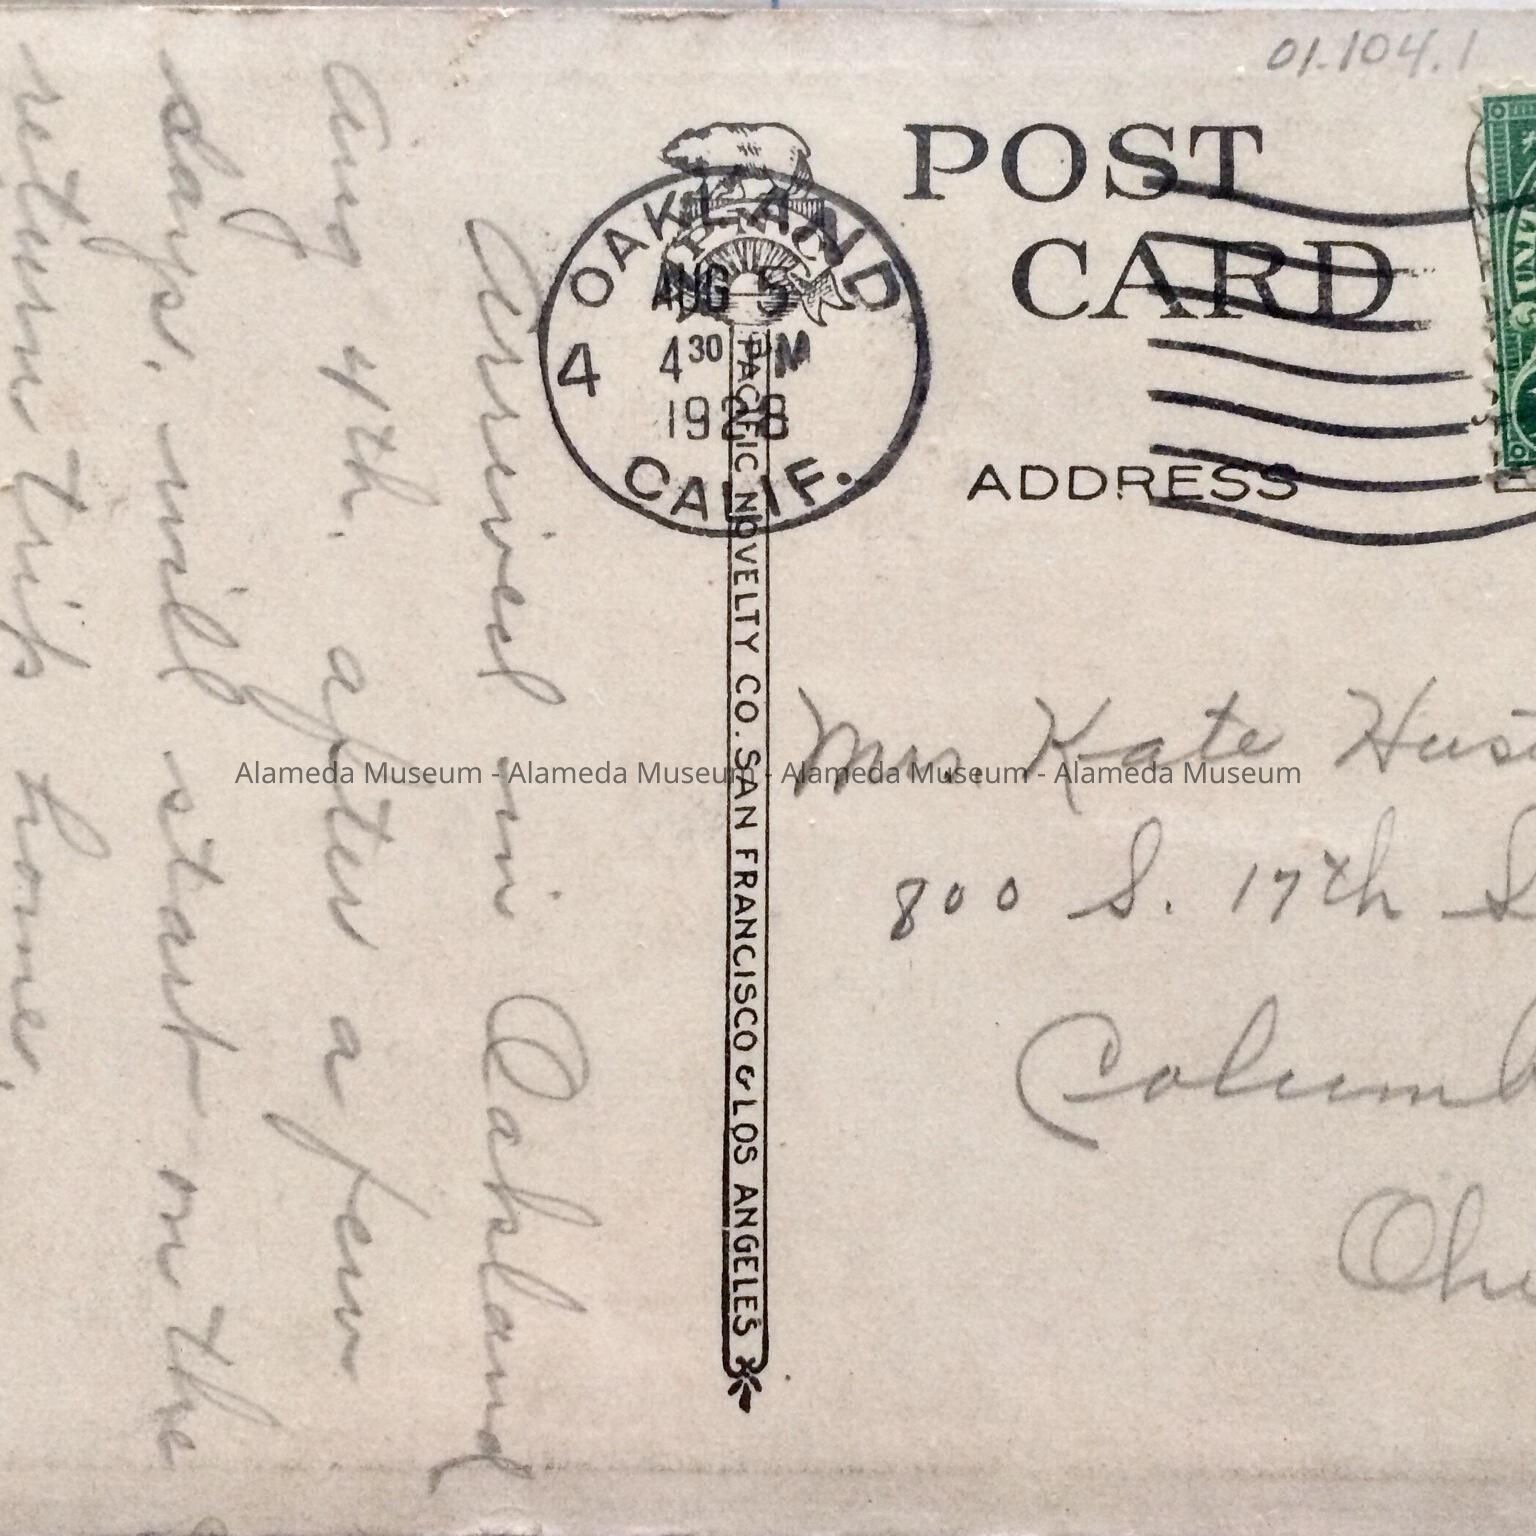 01.104.1
POST
CARD
ADDRESS
OAKLAND
AUG 5
4 30 PM
1928
4
CALIF.
P.N.C.
PACIFIC NOVELTY CO. SAN FRANCISCO & LOS ANGELES
Arrived in Oakland
Aug 4th. after a few
days. will start on the
return trip home,
Mrs. Kate Hust
800 S. 17th S
Columb
Ohi
Alameda Museum - Alameda Museum - Alameda Museum - Alameda Museum